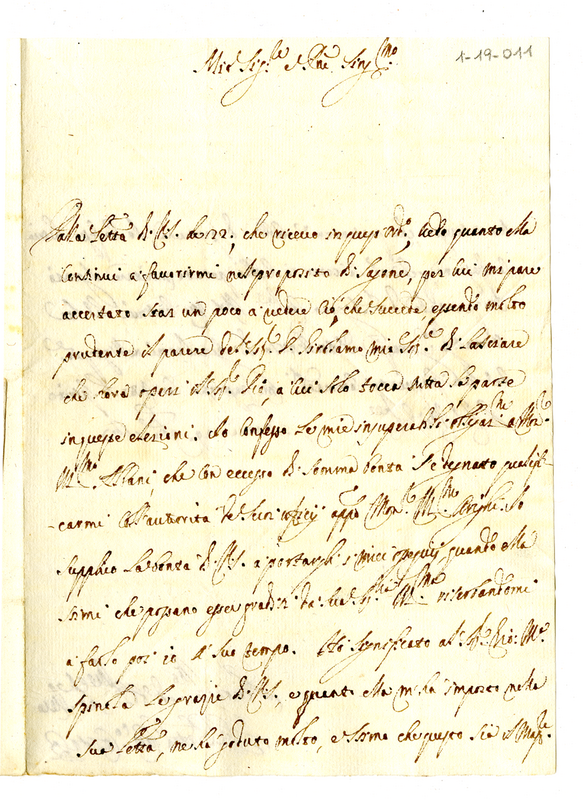 1-19-011
Mio Sig.re e Pne Sing.mo
Dalla Lettra di V.S. de 22, che ricevo in quest' ord.o, vedo quanto ella
continui a favorirmi nel proposito di Sayone, per cui mi pare
accertato star un poco a vedere ciò, che succede, essendo molto
prudente il parere del Sig.r D. Girolamo mio Sig.re di lasciare
che hora operi il Sig.r Dio a cui solo tocca tutta la parte
in queste elezioni. Io confesso le mie insuperabili a Mon.r
Albani, che con eccesso di somma bontà s'è degnato qualifi-
carmi coll'autorità de suoi uffizij app.o Mon.r Io
supplico la bontà di V.S. a portargli i miei ossequij quando ella
stimi che possano esser graditi da Sua riserbandomi
a farlo poi io a suo tempo. Ho significato al Sig.r Gio: M.a
Spinola le grazie di V.S. e quanto ella m'ha imposto nella
sua Lettra, ne ha goduto molto, e stima che questo sia il